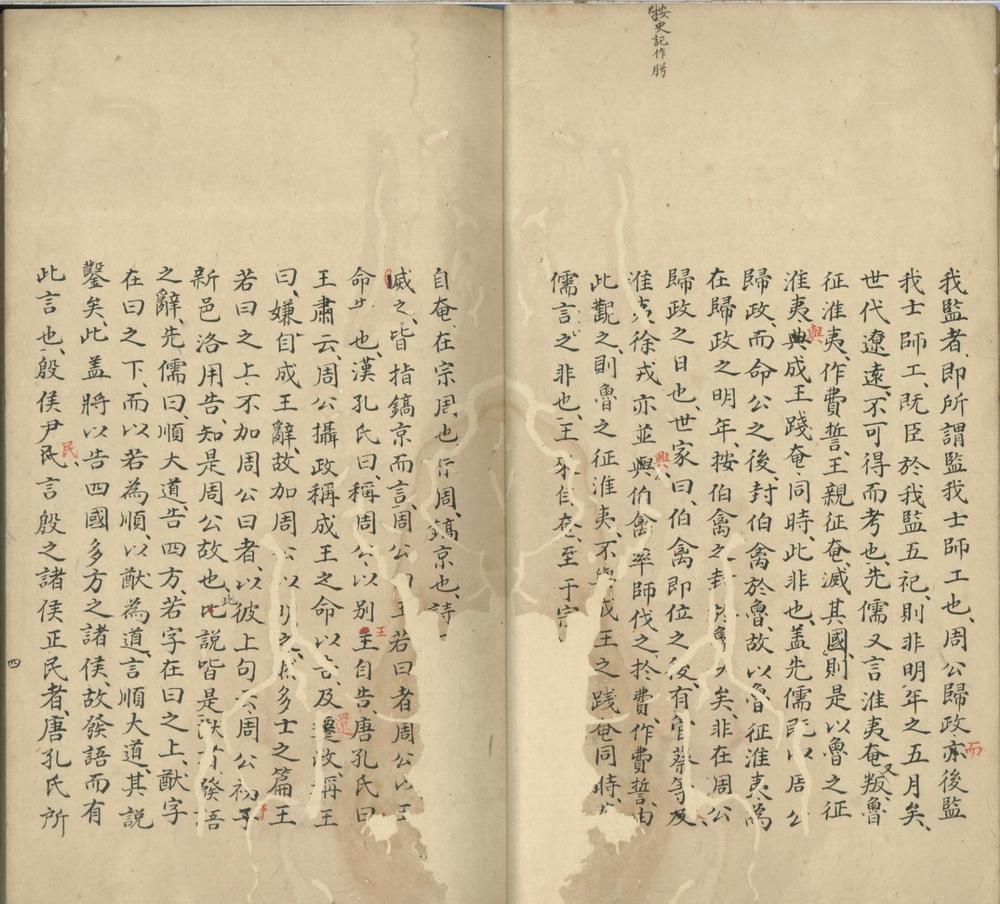 按史記作肸
我監者、即所謂監我士師工也、周公歸政亦後監
而
我士師工、既臣於我監五祀、則非明年之五月矣、
世代遼遠、不可得而考也、先儒又言淮夷奄又叛、魯
征淮夷、作費誓、王親征奄、滅其國、則是以魯之征
淮夷、典成王踐奄、同時、此非也、蓋先儒既以周公
與
歸政、而命公之後、封伯禽於魯、故以魯征淮夷、為
在歸政之明年、按伯禽之封於魯矣、非在周公
歸政之日也、世家曰、伯禽即位之後、有管蔡等反
淮夷、徐戎亦並興、伯禽率師伐之於費、作費誓、由
興
此觀之、則魯之征淮夷、不與成王之踐奄同時、
儒言之非也、王來自奄、至于宗
自奄、在宗周也、宗周、鎬京也、詩
滅之、皆指鎬京而言、周公曰王若曰者、周公以王
命也、漢孔氏曰、稱周公以別王自告、唐孔氏曰
王
王肅云、周公攝政稱成王之命以告、及還政、稱王
還
曰、嫌自成王辭、故加周公以之、多士之篇、王
若曰之上、不加周公曰者、以彼上句云、周公初于
于
新邑洛用告、知是周公故也、此說皆是發語
此
之辭、先儒曰、順大道、告四方、若字在曰之上、猷字
在曰之下、而以若為順、以猷為道、言順大道、其說
鑿矣、此蓋將以告四國多方之諸侯、故發語而有
此言也、殷侯尹民、言殷之諸侯正民者、唐孔氏所
民
四